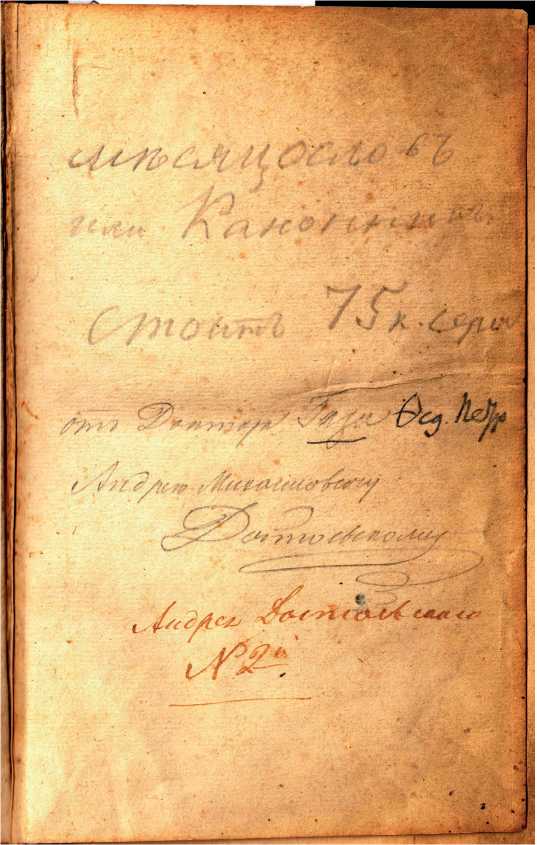 мѣсяцословъ
или Каноникъ.
стоитъ 75 к. сереб
отъ Доктора Гааза Ѳед. Петр
Андрею Михайловичу
Достоевскому
Андрея Достоевскаго
N 2й